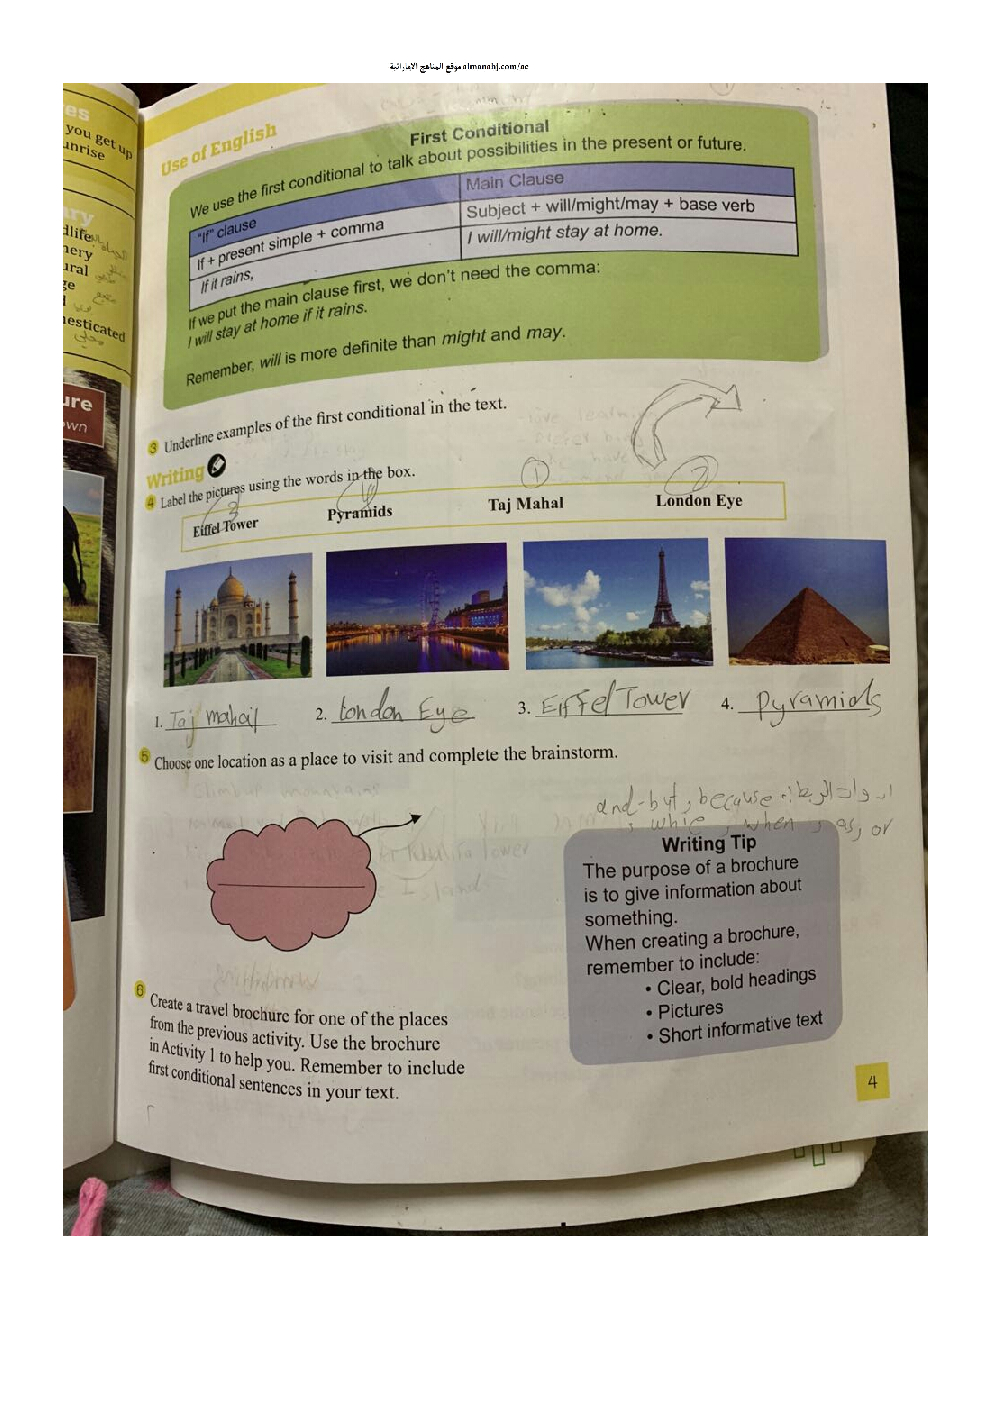 موقع المناهج الإماراتية almanahj.com/ae
es
you get up
unrise
ary
dlife
nery
ural
ge
nesticated
ure
own
Use of English
First Conditional
We use the first conditional to talk about possibilities in the present or future.
"If" clause
Main Clause
If + present simple + comma
Subject + will/might/may + base verb
If it rains,
I will/might stay at home.
If we put the main clause first, we don't need the comma:
I will stay at home if it rains.
Remember, will is more definite than might and may.
3 Underline examples of the first conditional in the text.
Writing
4 Label the pictures using the words in the box.
3
4
1
2
Eiffel Tower
Pyramids
Taj Mahal
London Eye
1. Taj mahal
2. London Eye
3. Eiffel Tower
4. Pyramids
5 Choose one location as a place to visit and complete the brainstorm.
and - but, because ادوات الربط:
, when , as, or
Writing Tip
The purpose of a brochure
is to give information about
something.
When creating a brochure,
remember to include:
• Clear, bold headings
• Pictures
• Short informative text
6 Create a travel brochure for one of the places
from the previous activity. Use the brochure
in Activity 1 to help you. Remember to include
first conditional sentences in your text.
4